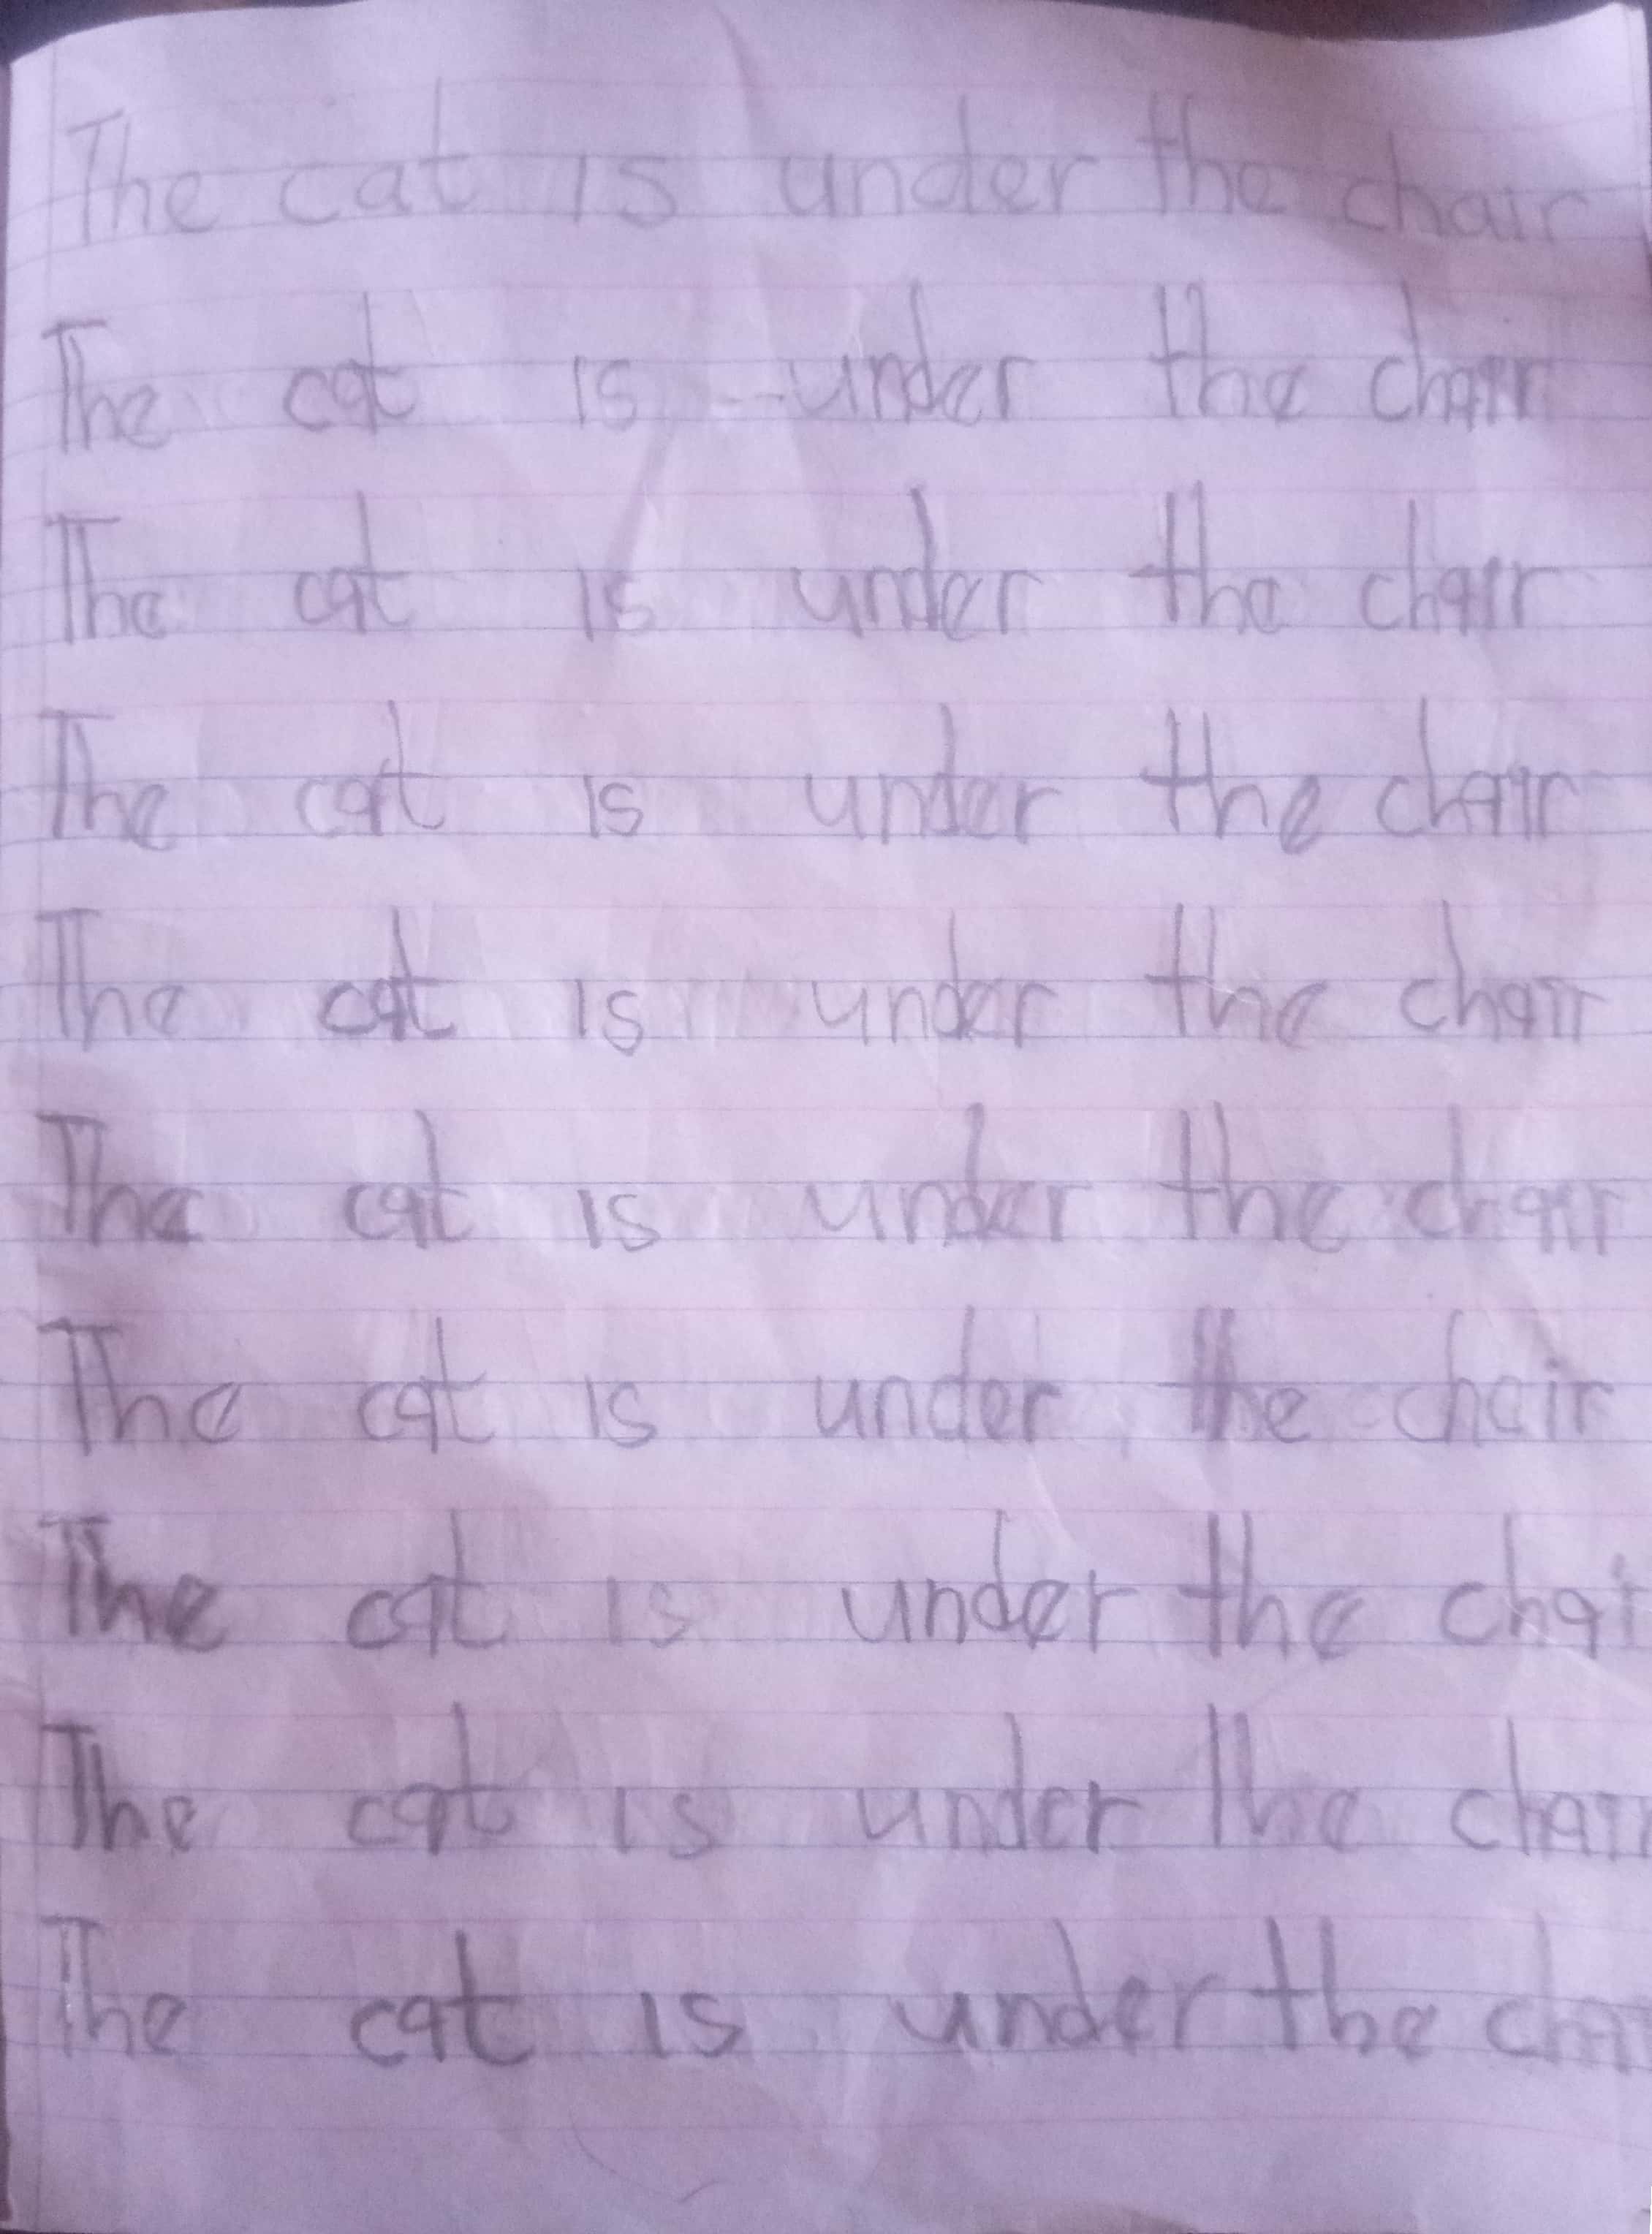 The cat is under the chair
The cat is under the chair
The cat is under the chair
The cat is under the chair
The cat is under the chair
The cat is under the chair
The cat is under the chair
The cat is under the chai
The cat is under the chair
The cat is under the cha